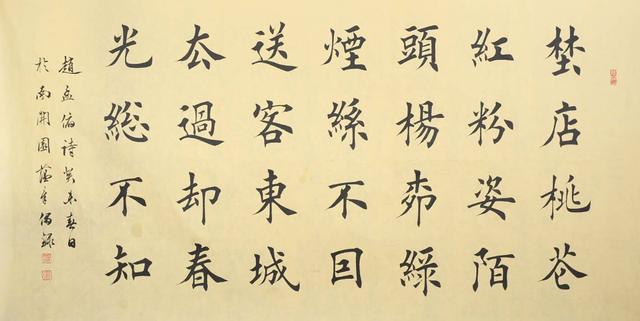 埜店桃花
紅粉姿陌
頭楊栁綠
煙絲不囙
送客東城
厺過却春
光総不知
趙孟俯詩癸未春日
於南開園